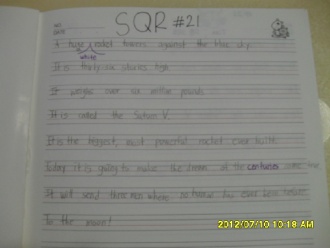 NO.
DATE
SQR #21
A huge rocket towers against the blue sky
white
It is thirty six stories high.
It weighs over six million pounds.
It is called the Saturn V.
It is the biggest, most powerful rocket ever built.
Today it is going to make the dream of the centuries come true
It will send three men where no human has ever been before
To the moon!
2012/07/10 10:18 AM